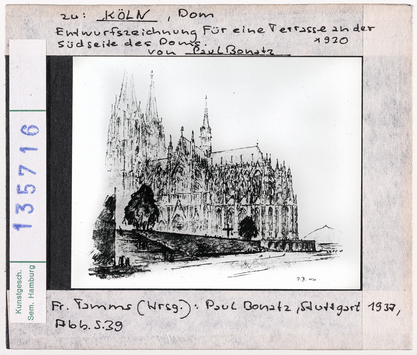 zu: KÖLN, Dom
Entwurfszeichnung für eine Terrasse an der
Südseite des Doms. *920
von Paul Bonatz
135716
Kunstgesch.
Sem. Hamburg
Fr. Tamms (Hrsg.): Paul Bonatz, Stuttgart 1937,
Abb. S. 39